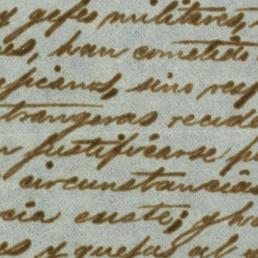 y gefes militares,
es, han cometido
sino resp
trangeras recide
justificarse p
circunstancias
cia exste; y ha
es y quejas al